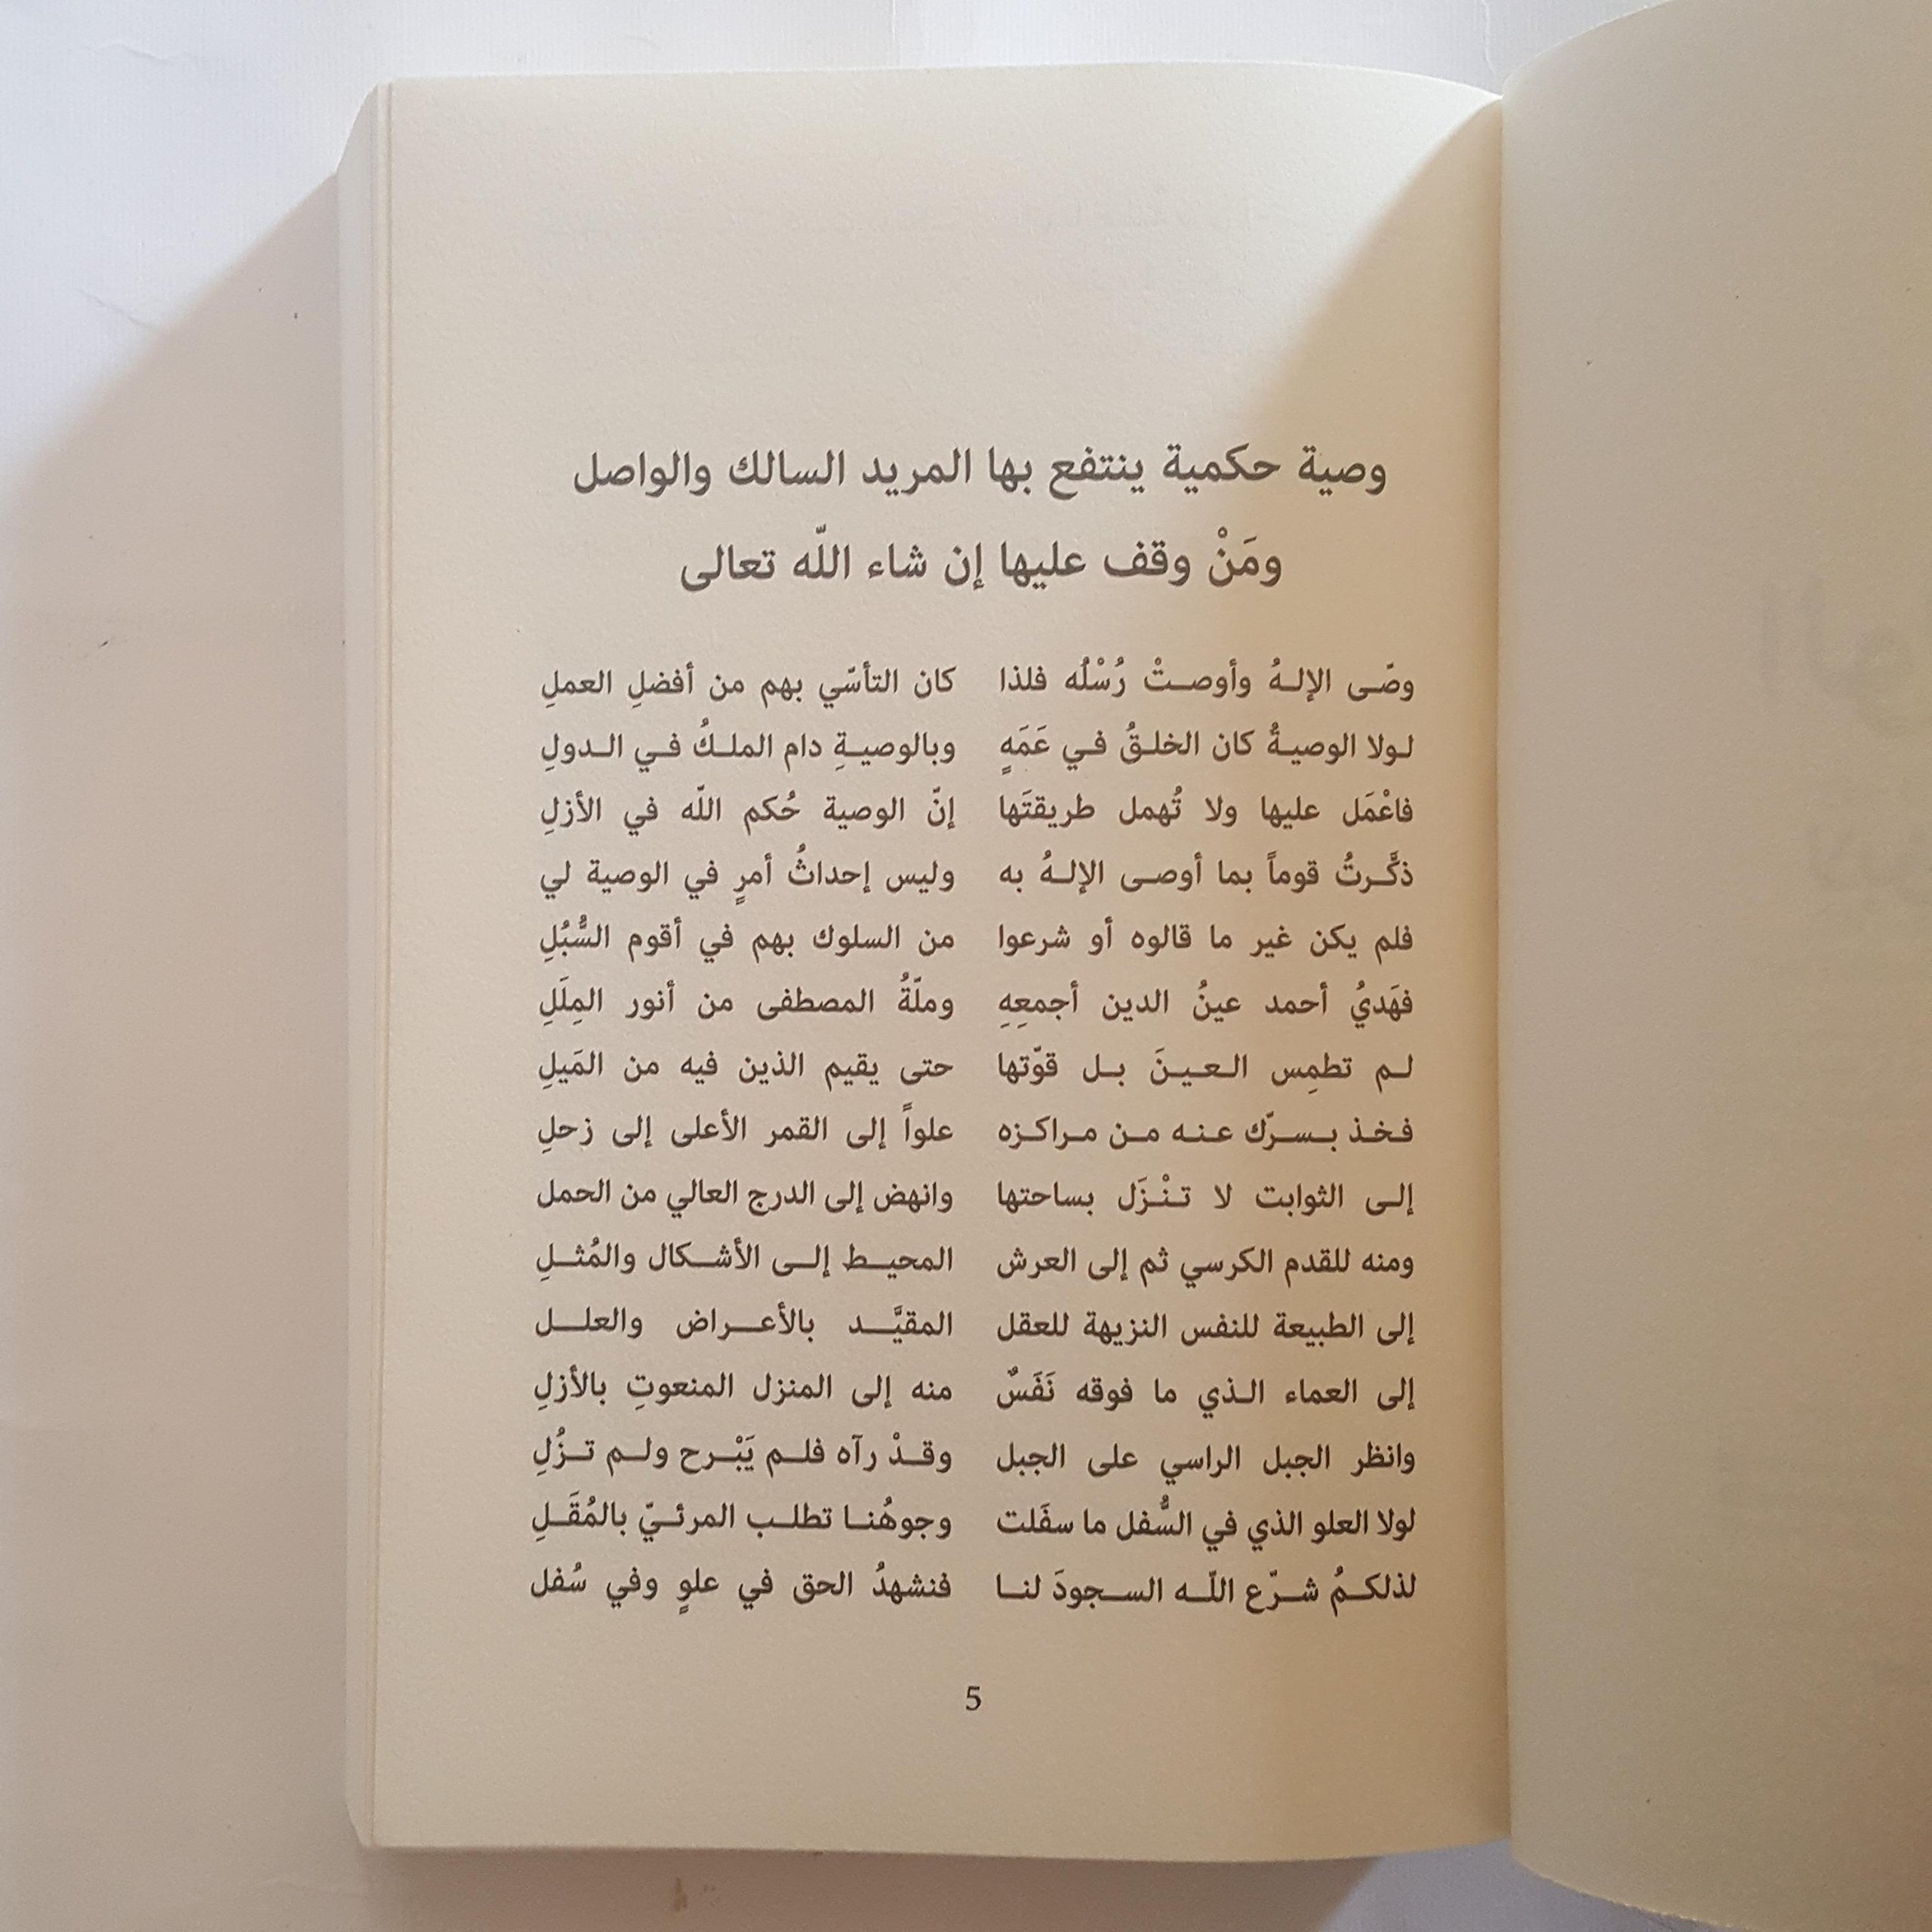 وصية حكمية ينتفع بها المريد السالك والواصل
ومَنْ وقف عليها إن شاء اللّه تعالى
وصّى الإلهُ وأوصتْ رُسْلُه فلذا كان التأسّي بهم من أفضلِ العملِ
لولا الوصيةُ كان الخلقُ في عَمَهٍ وبالوصيةِ دام الملكُ في الدولِ
فاعْمَل عليها ولا تُهمل طريقتَها إنّ الوصية حُكم اللّه في الأزلِ
ذكَّرتُ قوماً بما أوصى الإلهُ به وليس إحداثُ أمرٍ في الوصية لي
فلم يكن غير ما قالوه أو شرعوا من السلوك بهم في أقوم السُّبُلِ
فهَديُ أحمد عينُ الدين أجمعِهِ وملّةُ المصطفى من أنور المِلَلِ
لم تطمِس العينَ بل قوّتها حتى يقيم الذين فيه من المَيلِ
فخذ بسرّك عنه من مراكزه علواً إلى القمر الأعلى إلى زحلِ
إلى الثوابت لا تنْزَل بساحتها وانهض إلى الدرج العالي من الحمل
ومنه للقدم الكرسي ثم إلى العرش المحيط إلى الأشكال والمُثلِ
إلى الطبيعة للنفس النزيهة للعقل المقيَّد بالأعراض والعلل
إلى العماء الذي ما فوقه نَفَسٌ منه إلى المنزل المنعوتِ بالأزلِ
وانظر الجبل الراسي على الجبل وقدْ رآه فلم يَبْرح ولم تزُلِ
لولا العلو الذي في السُّفل ما سفَلت وجوهُنا تطلب المرئيّ بالمُقَلِ
لذلكمُ شرّع اللّه السجودَ لنا فنشهدُ الحق في علوٍ وفي سُفل
5